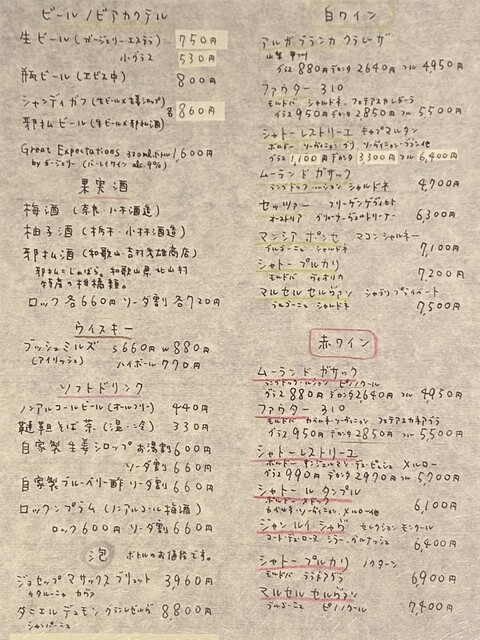 ビール/ビアカクテル
生ビール(ガージェリーエステラ) 750円
小グラス 530円
瓶ビール(エビス中) 800円
シャンディガフ(生ビール×生姜シロップ)
邪払ビール(生ビール×邪払酒) 各860円
Great Expectations 330mlボトル 1,600円
by ガージェリー(バーレイワイン alc.9%)
果実酒
梅酒(奈良・八木酒造)
柚子酒(栃木・小林酒造)
邪払酒(和歌山・吉村秀雄商店)
邪払=じゃばら。和歌山県北山村
特産の柑橘類。
ロック各660円 ソーダ割各720円
ウイスキー
ブッシュミルズ S660円 W880円
(アイリッシュ) ハイボール770円
ソフトドリンク
ノンアルコールビール(オールフリー) 440円
韃靼そば茶(温・冷) 330円
自家製生姜シロップお湯割600円
ソーダ割660円
自家製ブルーベリー酢 ソーダ割660円
ロックンプラム(ノンアルコール梅酒)
ロック600円 ソーダ割660円
泡 ボトルのお値段です。
ジョセップ マサックス ブリュット 3,960円
カタルーニャ カヴァ
ダニエル デュモン グランレゼルヴ 8,800円
シャンパーニュ
白ワイン
アルガブランカ クラレーザ
山梨 甲州
グラス880円 デカンタ2640円 フル4950円
ファウター310
モルドバ シャルドネ、フェテアスカレガーラ
グラス950円 デカンタ2850円 フル5500円
シャトーレストリーユ キャプマルタン
ボルドー ソーヴィニヨン・グリ、ソーヴィニヨン・ブラン他
グラス1,100円 デカンタ3300円 フル6,400円
ムーランド ガサック
ラングドックルション シャルドネ 4,700円
セッツァー フリーゲンゲヴィヒト
オーストリア グリューナーヴェルトリーナー 6,300円
マンシア ポンセ マコン シャルネー
ブルゴーニュ シャルドネ 7,100円
シャトー プルカリ
モルドバ ヴィオリカ 7,200円
マルセル セルヴァン シャブリ プライベート
ブルゴーニュ シャルドネ 7,500円
赤ワイン
ムーランド ガサック
ラングドックルション ピノノワール
グラス880円 デカンタ2640円 フル4950円
ファウター310
モルドバ カベルネ・ソーヴィニヨン フェテアスカネアグラ
グラス950円 デカンタ2850円 フル5500円
シャトーレストリーユ
ボルドー メルロー
グラス990円 デカンタ2970円 フル5700円
シャトー ル タンプル
ボルドー メドック
カベルネ・ソーヴィニヨン、メルロー他 6,100円
ジャン ルイ シャヴ セレクション モンクール
コート・デュ・ローヌ シラー、グルナッシュ
6,400円
シャトー プルカリ ノクターン
モルドバ ララネアグラ 6,900円
マルセル セルヴァン
ブルゴーニュ ピノノワール 7,400円